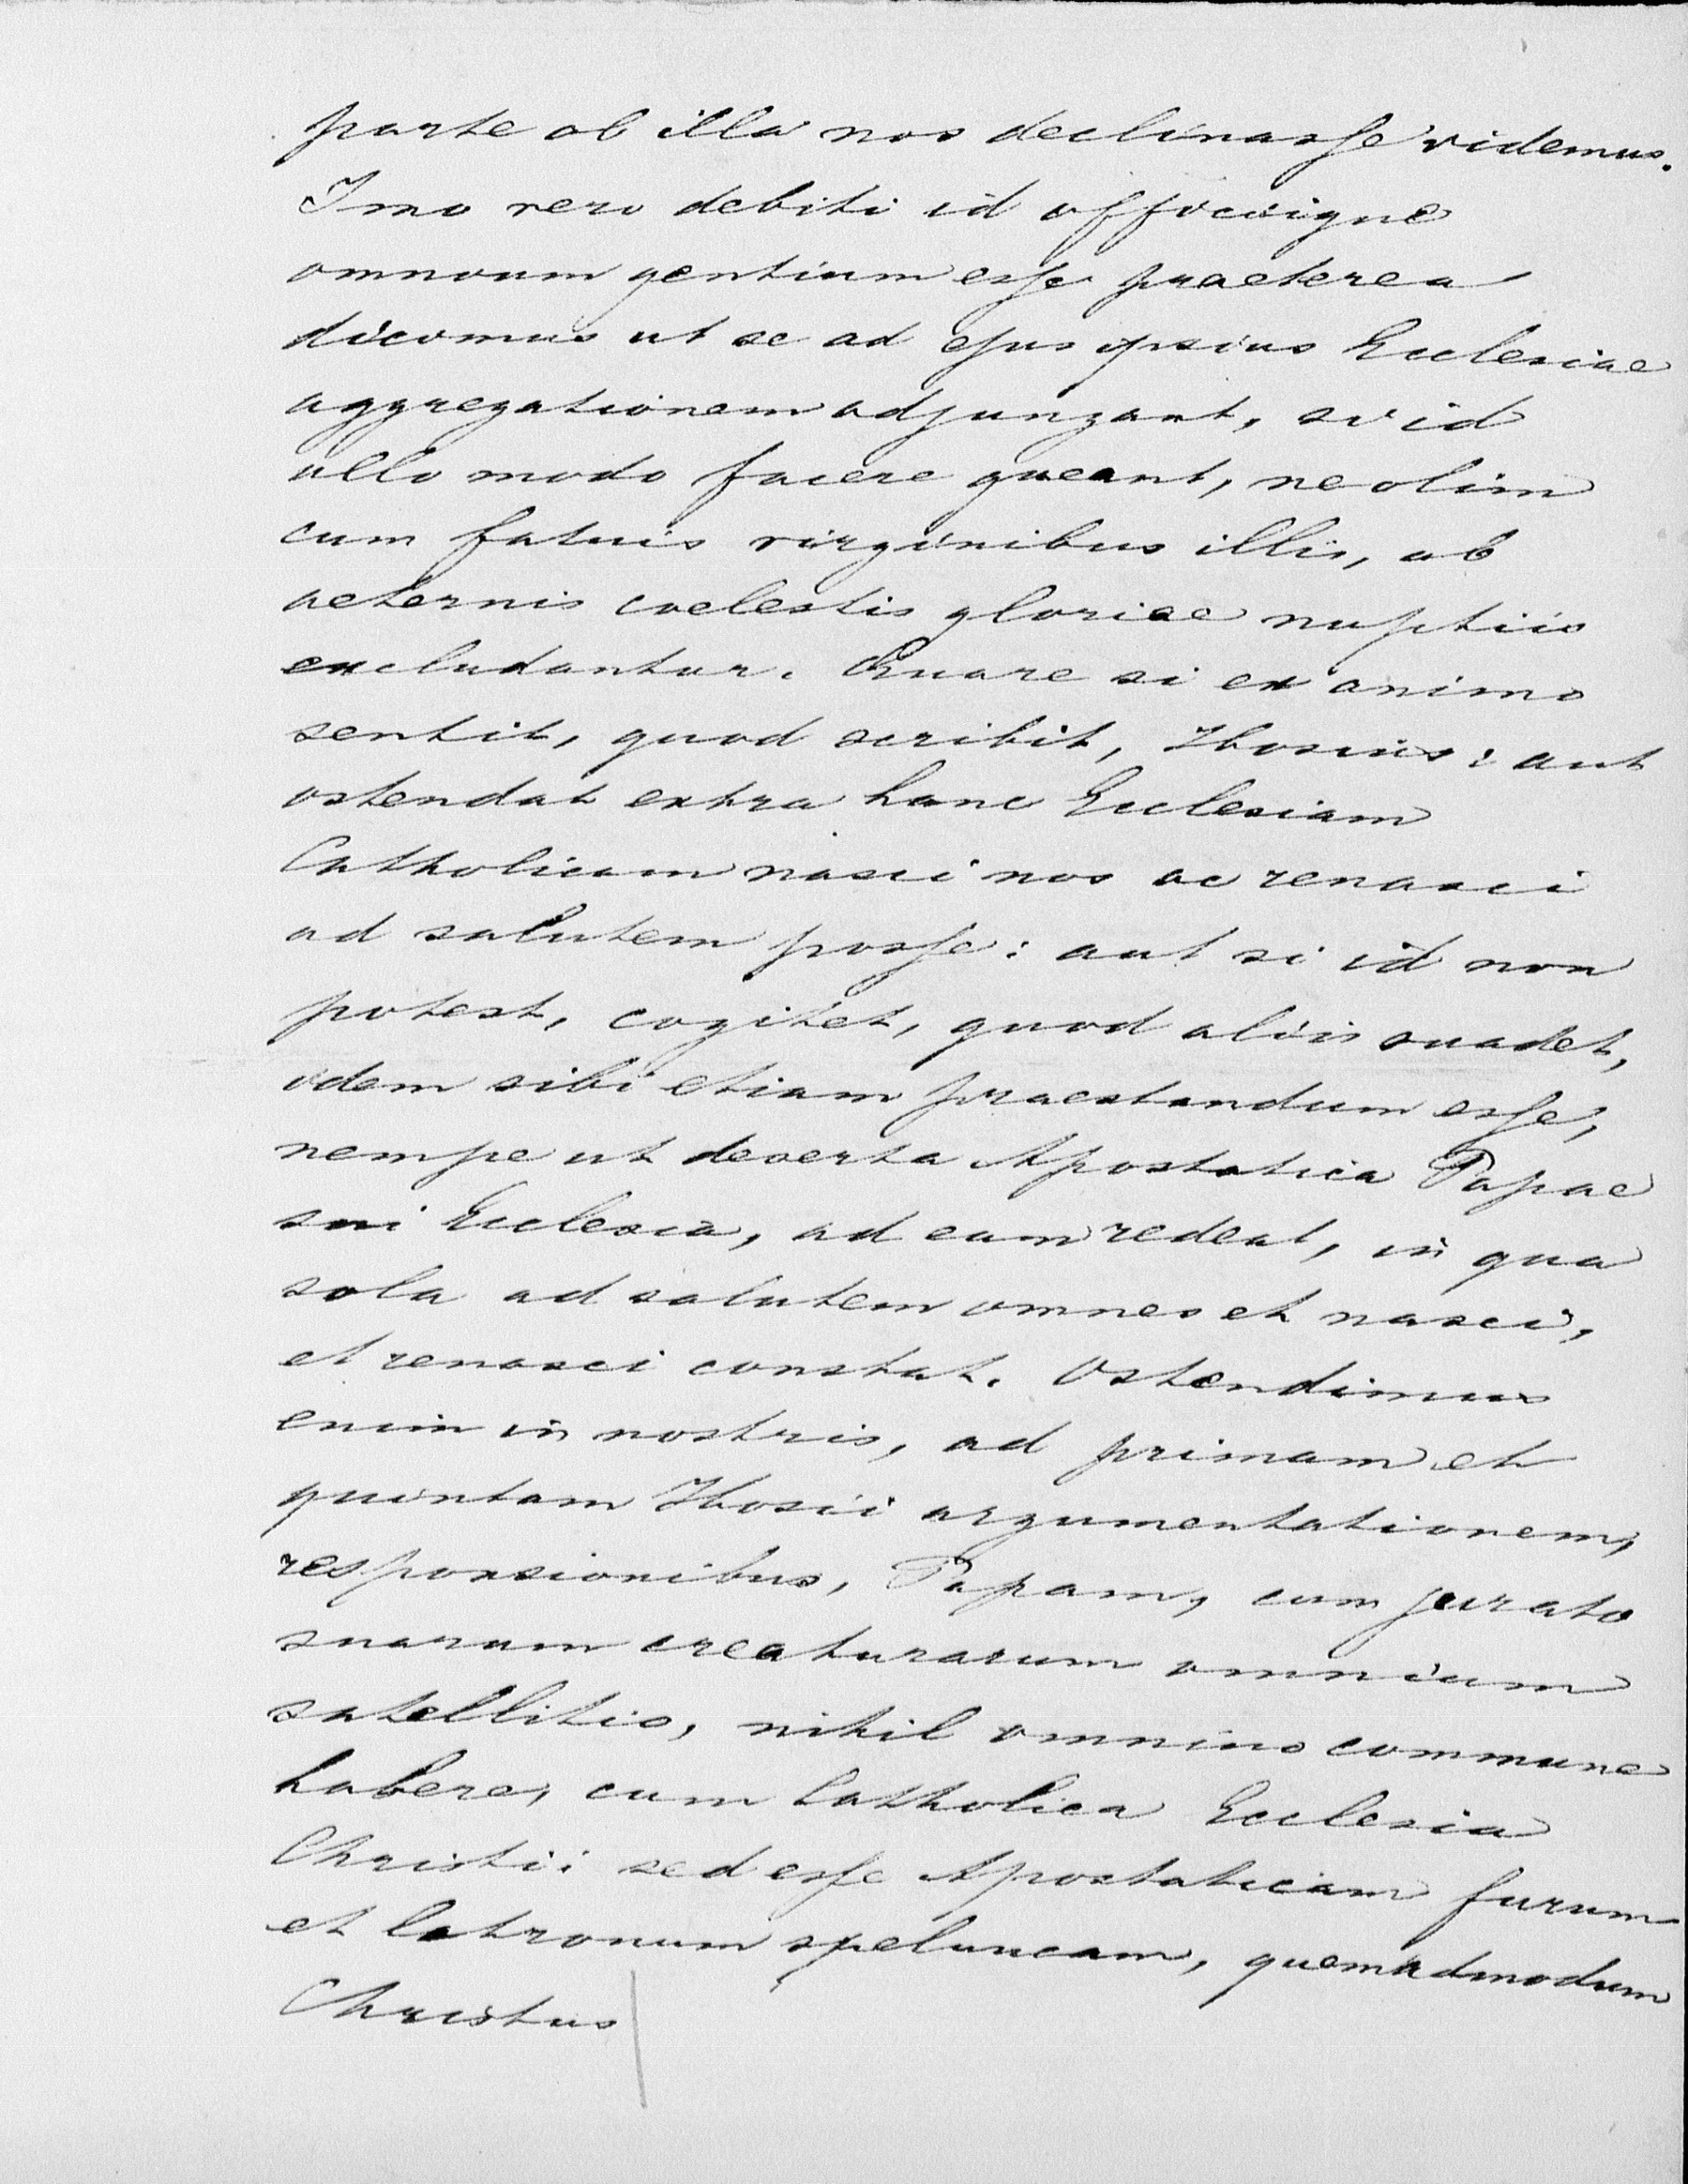 parte ab illa nos declinasse videmus.
Imo vero debiti id officiique
omnium gentium esse praeterea
dicimus ut se ad ejus ipsius Ecclesiae
aggregationem adjungant, si id
ullo modo facere queant, ne olim
cum fatuis virginibus illis, ab
aeternis coelestis gloriae nuptiis
excludantur. Quare si ex animo
sentit, quod scribit, Hosius: aut
ostendat extra hanc Ecclesiam
Catholicam nasci nos ac renasci
ad salutem posse: aut si id non
potest, cogitet, quod aliis suadet,
idem sibi etiam praestandum esse,
nempe ut deserta Apostatica Papae
sui Ecclesia, ad eam redeat, in qua
sola ad salutem omnes et nasci,
et renasci constat. Ostendimus
enim in nostris, ad primam et
quintam Hosii argumentationem,
responsionibus, Papam, cum jurato
suarum creaturarum omnium
satellitio, nihil omnino commune
habere, cum Catholica Ecclesia
Christi: sed esse Apostaticam furum
et latronum speluncam, quemadmodum
Christus